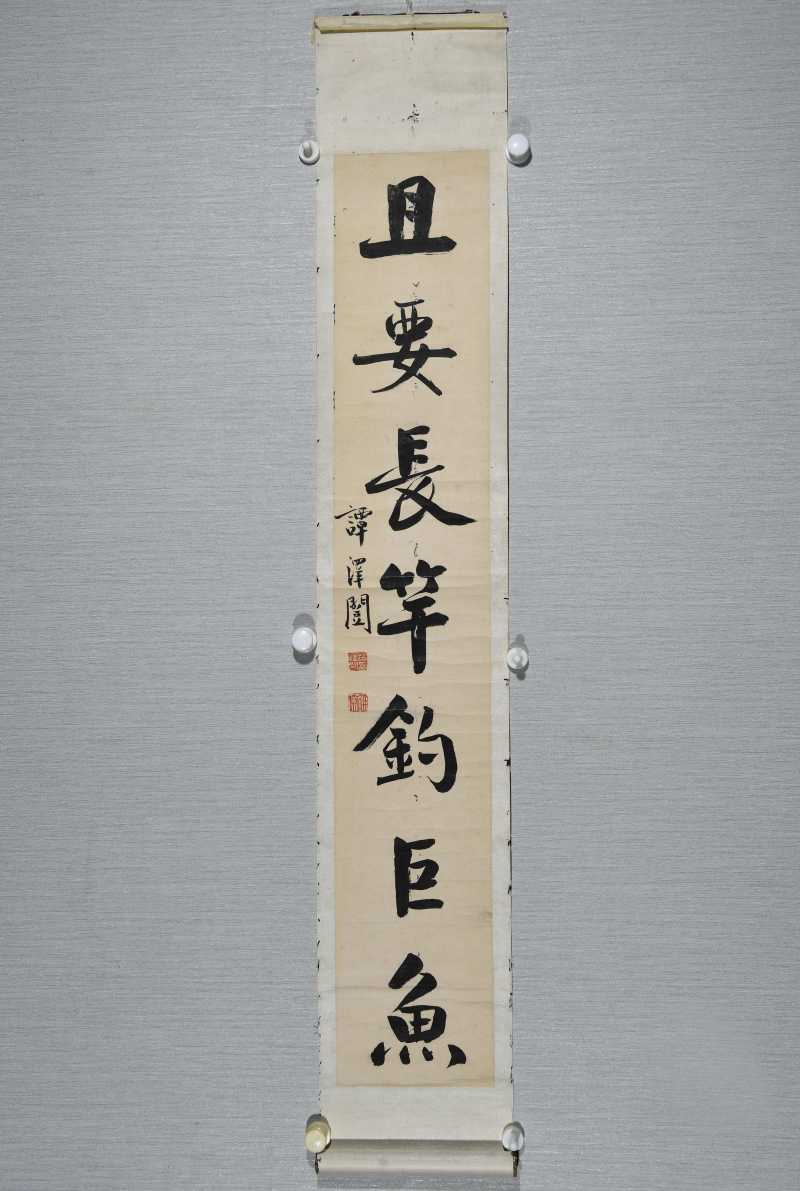 且要長竿釣巨魚
譚澤闓